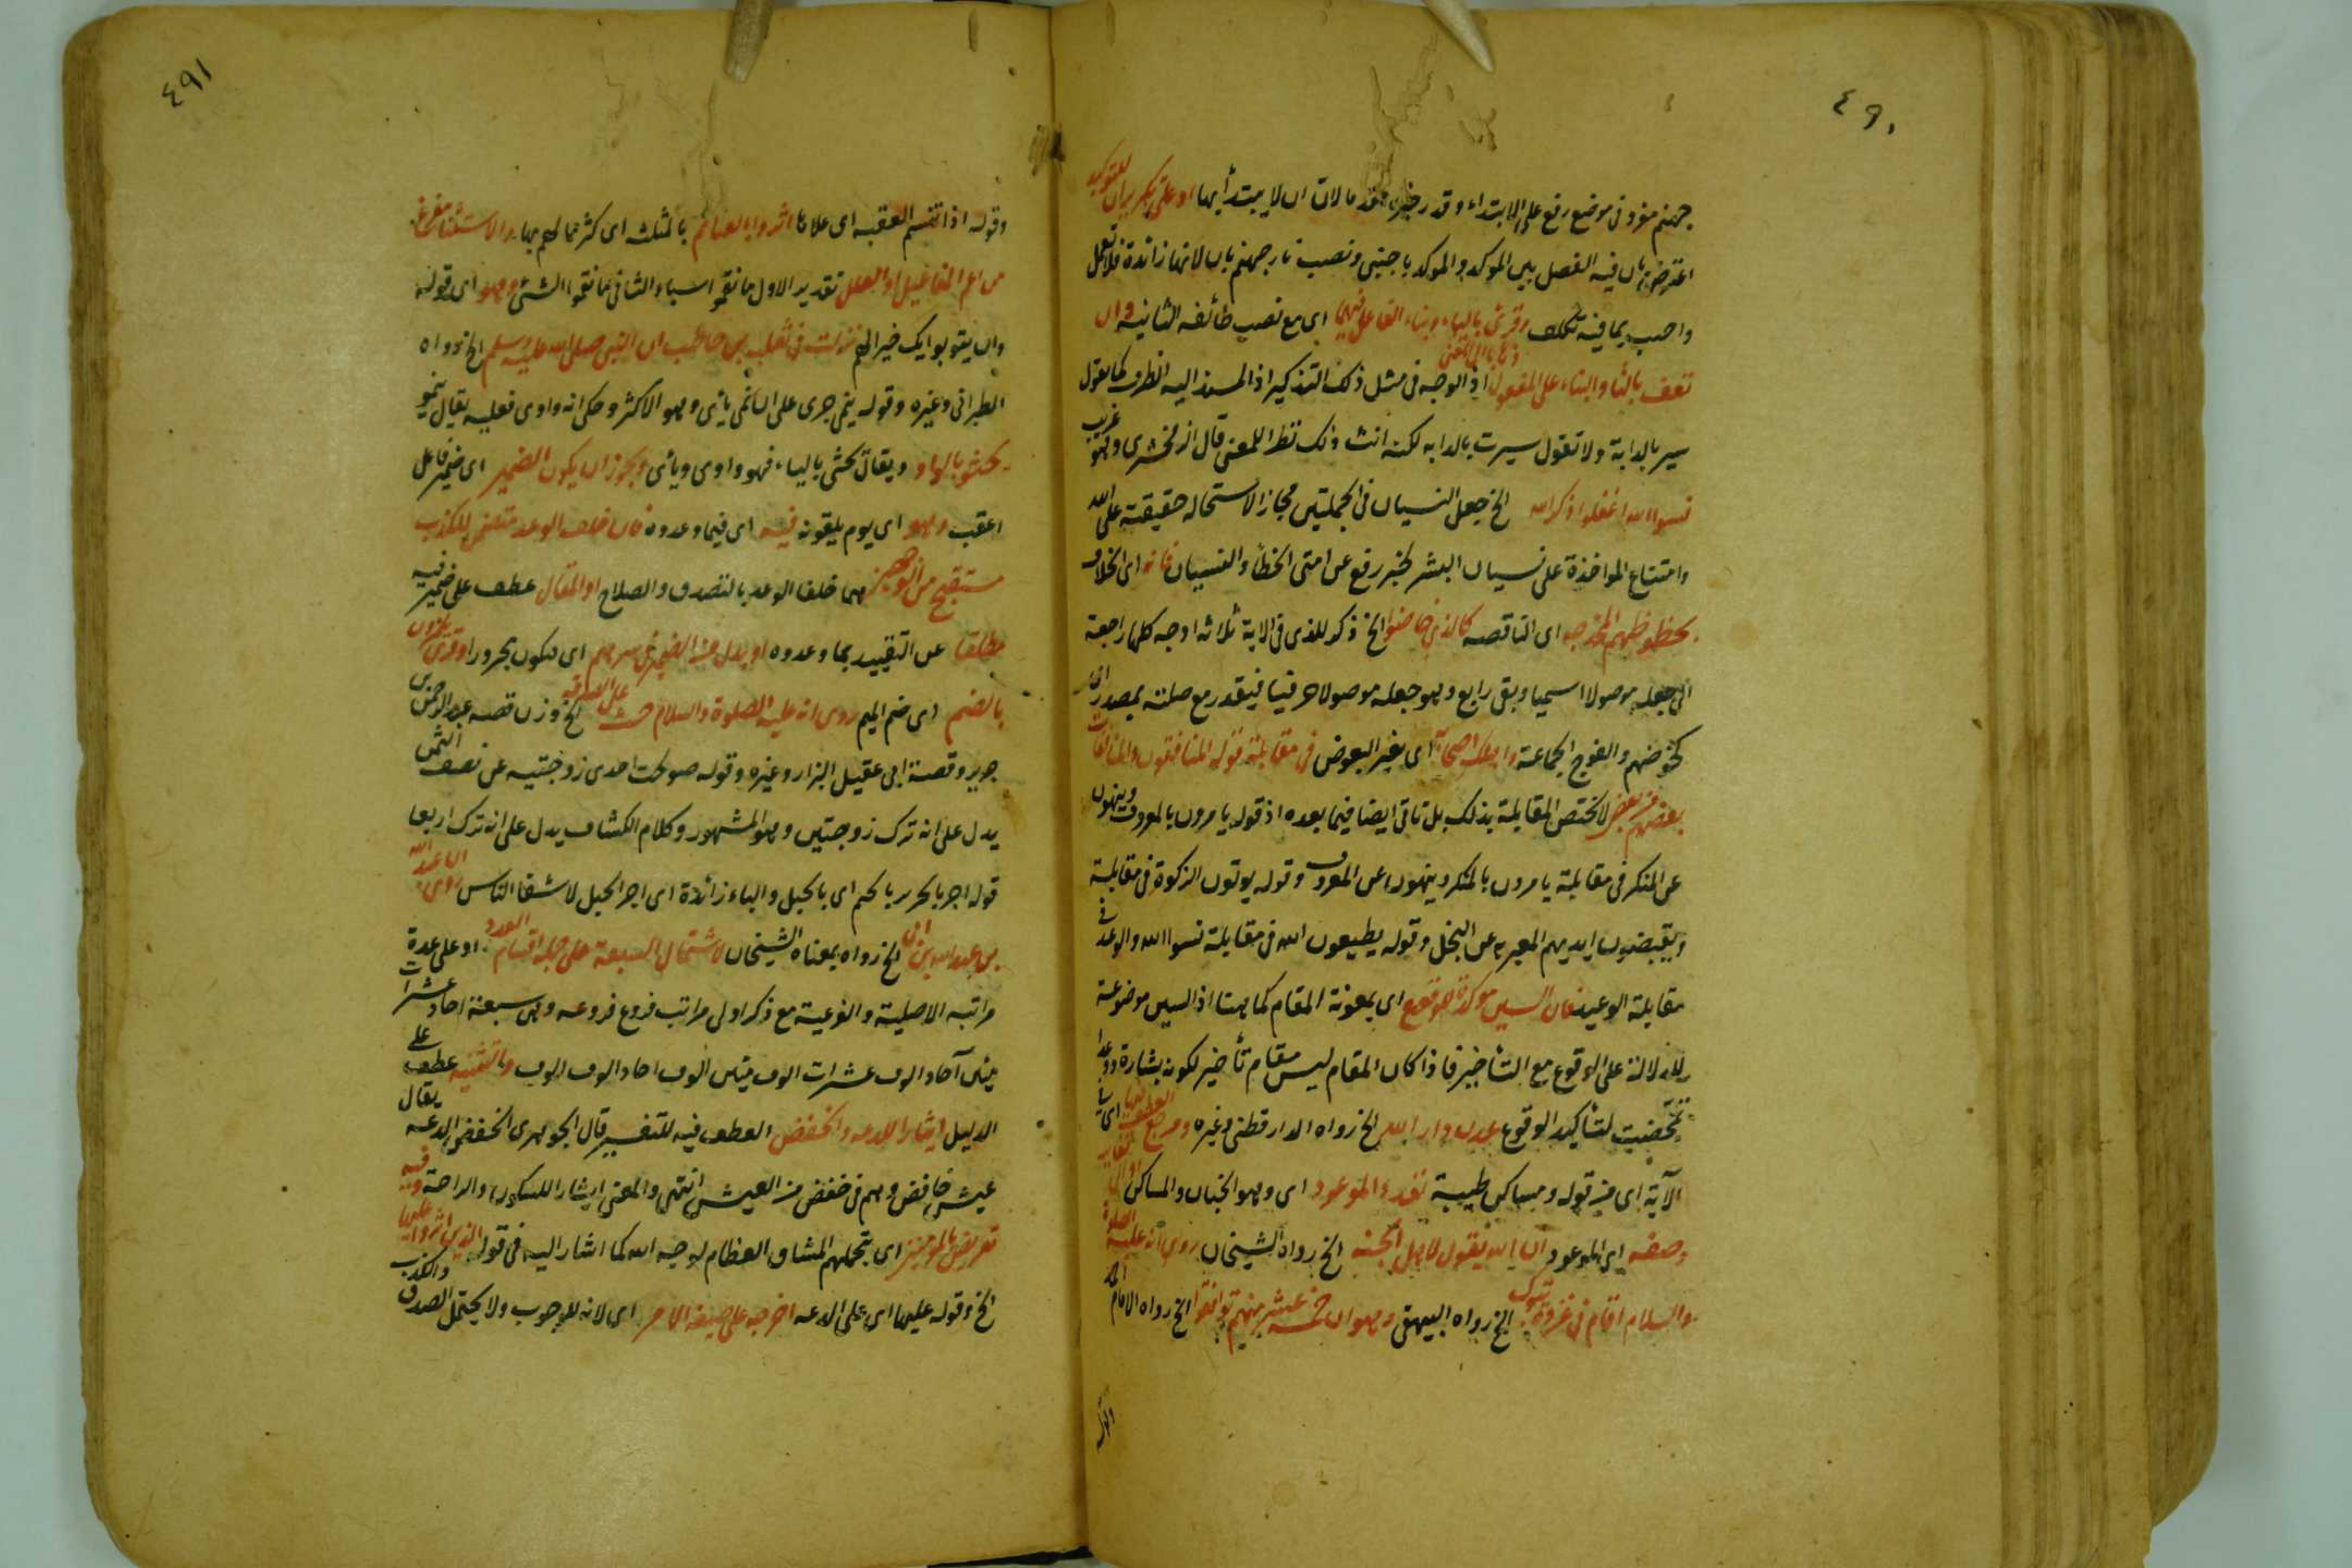 ٤٩٠
جهنم مفرد في موضع رفع على الابتداء وقدر خبره مقدما لان ان لا يبتدأ بها او على تكرير ان للتوكيد
اعترض بان فيه الفصل بين الموكد والموكد باجنبي ونصب نار جهنم بان لانها زائدة فلا تعمل
واجيب بما فيه تكلف وقرئ بالياء وبناء الفاعل فيهما اى مع نصب طائفة الثانية وان
تعف بالتا والبناء على المفعول ذهابا الى المعنى اذ الوجه في مثل ذلك التذكير اذ المسند اليه الظرف كما تقول
سير بالدابة ولا تقول سيرت بالدابه لكنه انث ذلك نظرا للمعنى قال الزمخشرى وهو غريب
نسوا الله اغفلوا ذكر الله الخ جعل النسيان في الجملتين مجازا لاستحالة حقيقته على الله
وامتناع المواخذة على نسيان البشر لخبر رفع عن امتى الخطأ والنسيان فانه اى الخلاق
بحظوظهم المخدجه اى الناقصه كالذي خاضوا الخ ذكر للذى في الاية ثلاثه اوجه كلها راجعة
الى جعله موصولا اسميا وبقى رابع وهو جعله موصولا حرفيا فيقدر مع صلته بمصدر اى
كخوضهم والفوج الجماعة اى بغير البعوض في مقابلة قوله المنافقون والمنافقات
بعضهم من بعض لا تختص المقابلة بذلك بل تاتى ايضا فيما بعده اذ قوله يامرون بالمعروف وينهون
عن المنكر في مقابلة يامرون بالمنكر وينهون عن المعروف وقوله يوتون الزكوة في مقابلة
ويقبضون ايديهم المعبر به عن البخل وقوله يطيعون الله في مقابلة نسوا الله والوعد في
مقابلة الوعيد فان السين موكدة للوقوع اى بمعونة المقام كما هنا اذ السين موضوعة
للدلالة على الوقوع مع التأخير فاذا كان المقام ليس مقام تأخير لكونه بشارة ووعدا
تمحضت لتأكيد الوقوع عدن دار الله الخ رواه الدارقطنى وغيره ومرجع العطف فيها اى في
الآية اى من قوله ومساكن طيبة تعدد الموعود اى وهو الجنان والمساكن او الى تغاير
وصفه اى الموعود ان الله يقول لاهل الجنة الخ رواه الشيخان روى انه عليه الصلوة
والسلام اقام في غزوة تبوك الخ رواه البيهقى وهو ان خمسة عشر منهم توافقوا الخ رواه الامام احمد
وقوله
٤٩١
وقوله اذا تسنم العقبه اى علاها اثروا بالغنائم بالمثلثه اى كثر مالهم بها والاستثناء مفرغ
من اعم المفاعيل او العلل تقدير الاول ما نقموا اشياء والثانى ما نقموا الشئ وهو اى قوله
وان يتوبوا يك خيرا لهم نزلت في ثعلبه بن حاطب اتى النبى صلى الله عليه وسلم الخ رواه
الطبرانى وغيره وقوله ينمى جرى على ان نمى يأى وهو الاكثر وحكى انه واوى فعليه يقال ينمو
كحثو بالواو ويقال كحثى بالياء فهو واوى ويأى ويجوز ان يكون الضمير اى ضمير فاعل
اعقب وهو اى يوم يلقونه فيه اى فيما وعدوه فان خلف الوعد متضمن للكذب
مستقبح من الوجهين هما خلف الوعد بالتصدق والصلاح او المقال عطف على ضمير فيه
مطلقا عن التقييد بما وعدوه او بدل من الضمير في سرهم اى فيكون مجرورا وقرئ يلمزون
بالضم اى ضم الميم روى انه عليه الصلوة والسلام حث على الصدقه الخ وزن قصه عبد الرحمن
جرير وقصة ابى عقيل البزار وغيره وقوله صولحت احدى زوجتيه عن نصف الثمن
يدل على انه ترك زوجتين وهو المشهور وكلام الكشاف يدل على انه ترك اربعا
قوله اجر بالجرير اى بالحبل والباء زائدة اى اجر الحبل لاشقا الناس روى ان عبد الله
بن عبد الله بن ابى الخ رواه بمعناه الشيخان لاشتمال السبعة على جملة اقسام العدد او على عدة
مراتبه الاصلية والفرعية مع ذكر اولى مراتب فروع فروعه وهى سبعة احاد عشرات
مئين آحاد الوف عشرات الوف مئين الوف احاد الوف الوف عطف على
الدليل ايثارا للدعه والخفض العطف فيه للتفسير قال الجوهرى الخفض الدعه يقال
عيش خافض وهم في خفض من العيش انتهى والمعنى ايثارا للسكون والراحة وفيه
تعريض بالمومنين اى بتحملهم المشاق العظام لوجه الله كما اشار اليه في قوله الذين اثروا عليها
الخ وقوله عليها اى على الدعه اخرجه على صيغة الامر اى لانه للوجوب ولا يحتمل الصدق والكذب